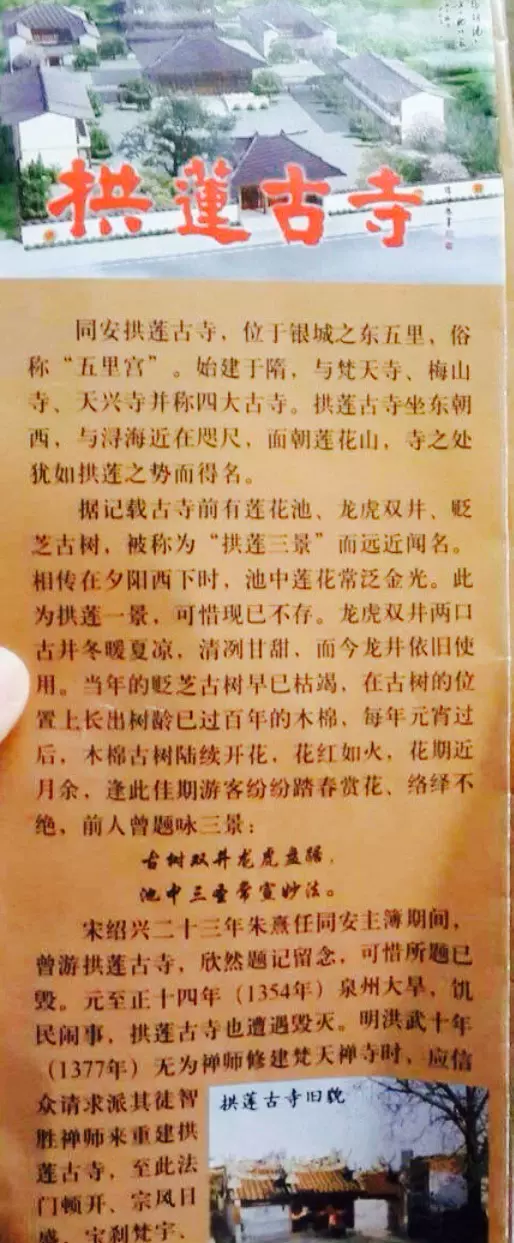 拱蓮古寺
同安拱莲古寺，位于银城之东五里，俗
称“五里宫”。始建于隋，与梵天寺、梅山
寺、天兴寺并称四大古寺。拱莲古寺坐东朝
西，与浔海近在咫尺，面朝莲花山，寺之处
犹如拱莲之势而得名。
据记载古寺前有莲花池、龙虎双井、贬
芝古树，被称为“拱莲三景”而远近闻名。
相传在夕阳西下时，池中莲花常泛金光。此
为拱莲一景，可惜现已不存。龙虎双井两口
古井冬暖夏凉，清冽甘甜，而今龙井依旧使
用。当年的贬芝古树早已枯竭，在古树的位
置上长出树龄已过百年的木棉，每年元宵过
后，木棉古树陆续开花，花红如火，花期近
月余，逢此佳期游客纷纷踏春赏花、络绎不
绝，前人曾题咏三景：
古树双井龙虎盘踞，
池中三圣常宣妙法。
宋绍兴二十三年朱熹任同安主簿期间，
曾游拱莲古寺，欣然题记留念，可惜所题已
毁。元至正十四年（1354年）泉州大旱，饥
民闹事，拱莲古寺也遭遇毁灭。明洪武十年
（1377年）无为禅师修建梵天禅寺时，应信
众请求派其徒智
胜禅师来重建拱
莲古寺，至此法
门顿开、宗风日
盛，宝刹梵宇、
拱莲古寺旧貌